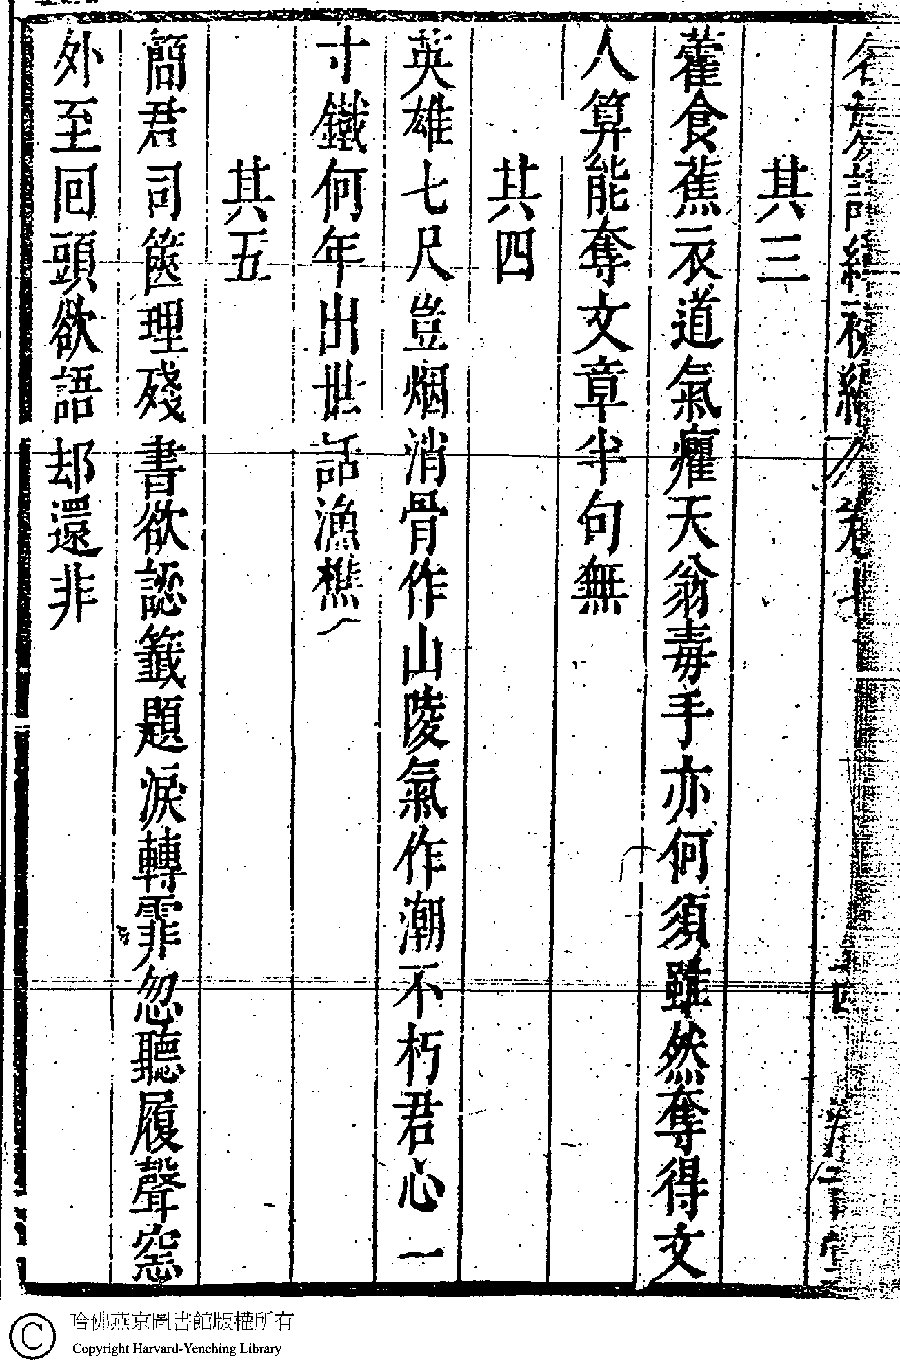 緯初編 卷七
其三
藿食蕉衣道氣癯天翁毒手亦何須雖然奪得文
人算能奪文章半句無
其四
英雄七尺豈烟消骨作山陵氣作潮不朽君心一
寸鐵何年出世話漁樵
其五
簡君司篋理殘書欲認籤題淚轉霏忽聽履聲窓
外至回頭欲語却還非
哈佛燕京圖書館版權所有
Copyright Harvard-Yenching Library